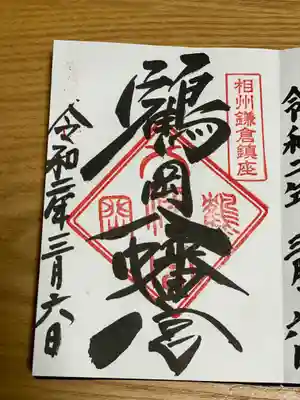 令和二年三月六日
相州鎌倉鎮座
鶴岡八幡宮
令和二年三月六日